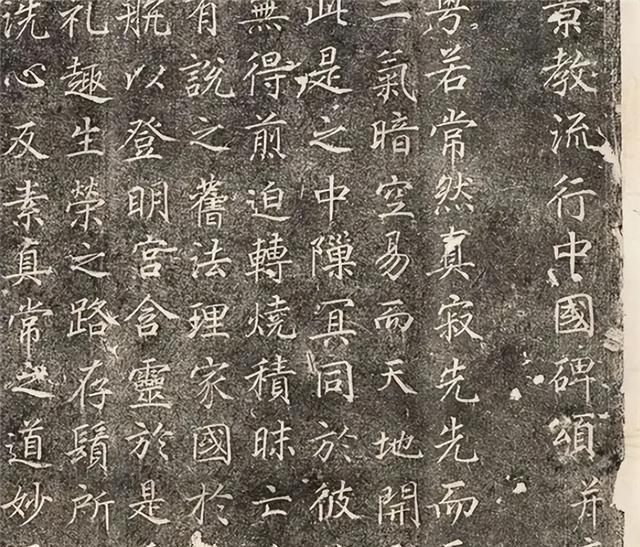 景教流行中國碑頌并
粤若常然真寂先先而
二氣暗空易而天地開
此是之中隟冥同於彼
無得煎迫轉燒積昧亡
有說之舊法理家國於
航以登明宮含靈於是
礼趣生榮之路存鬚所
洗心反素真常之道妙